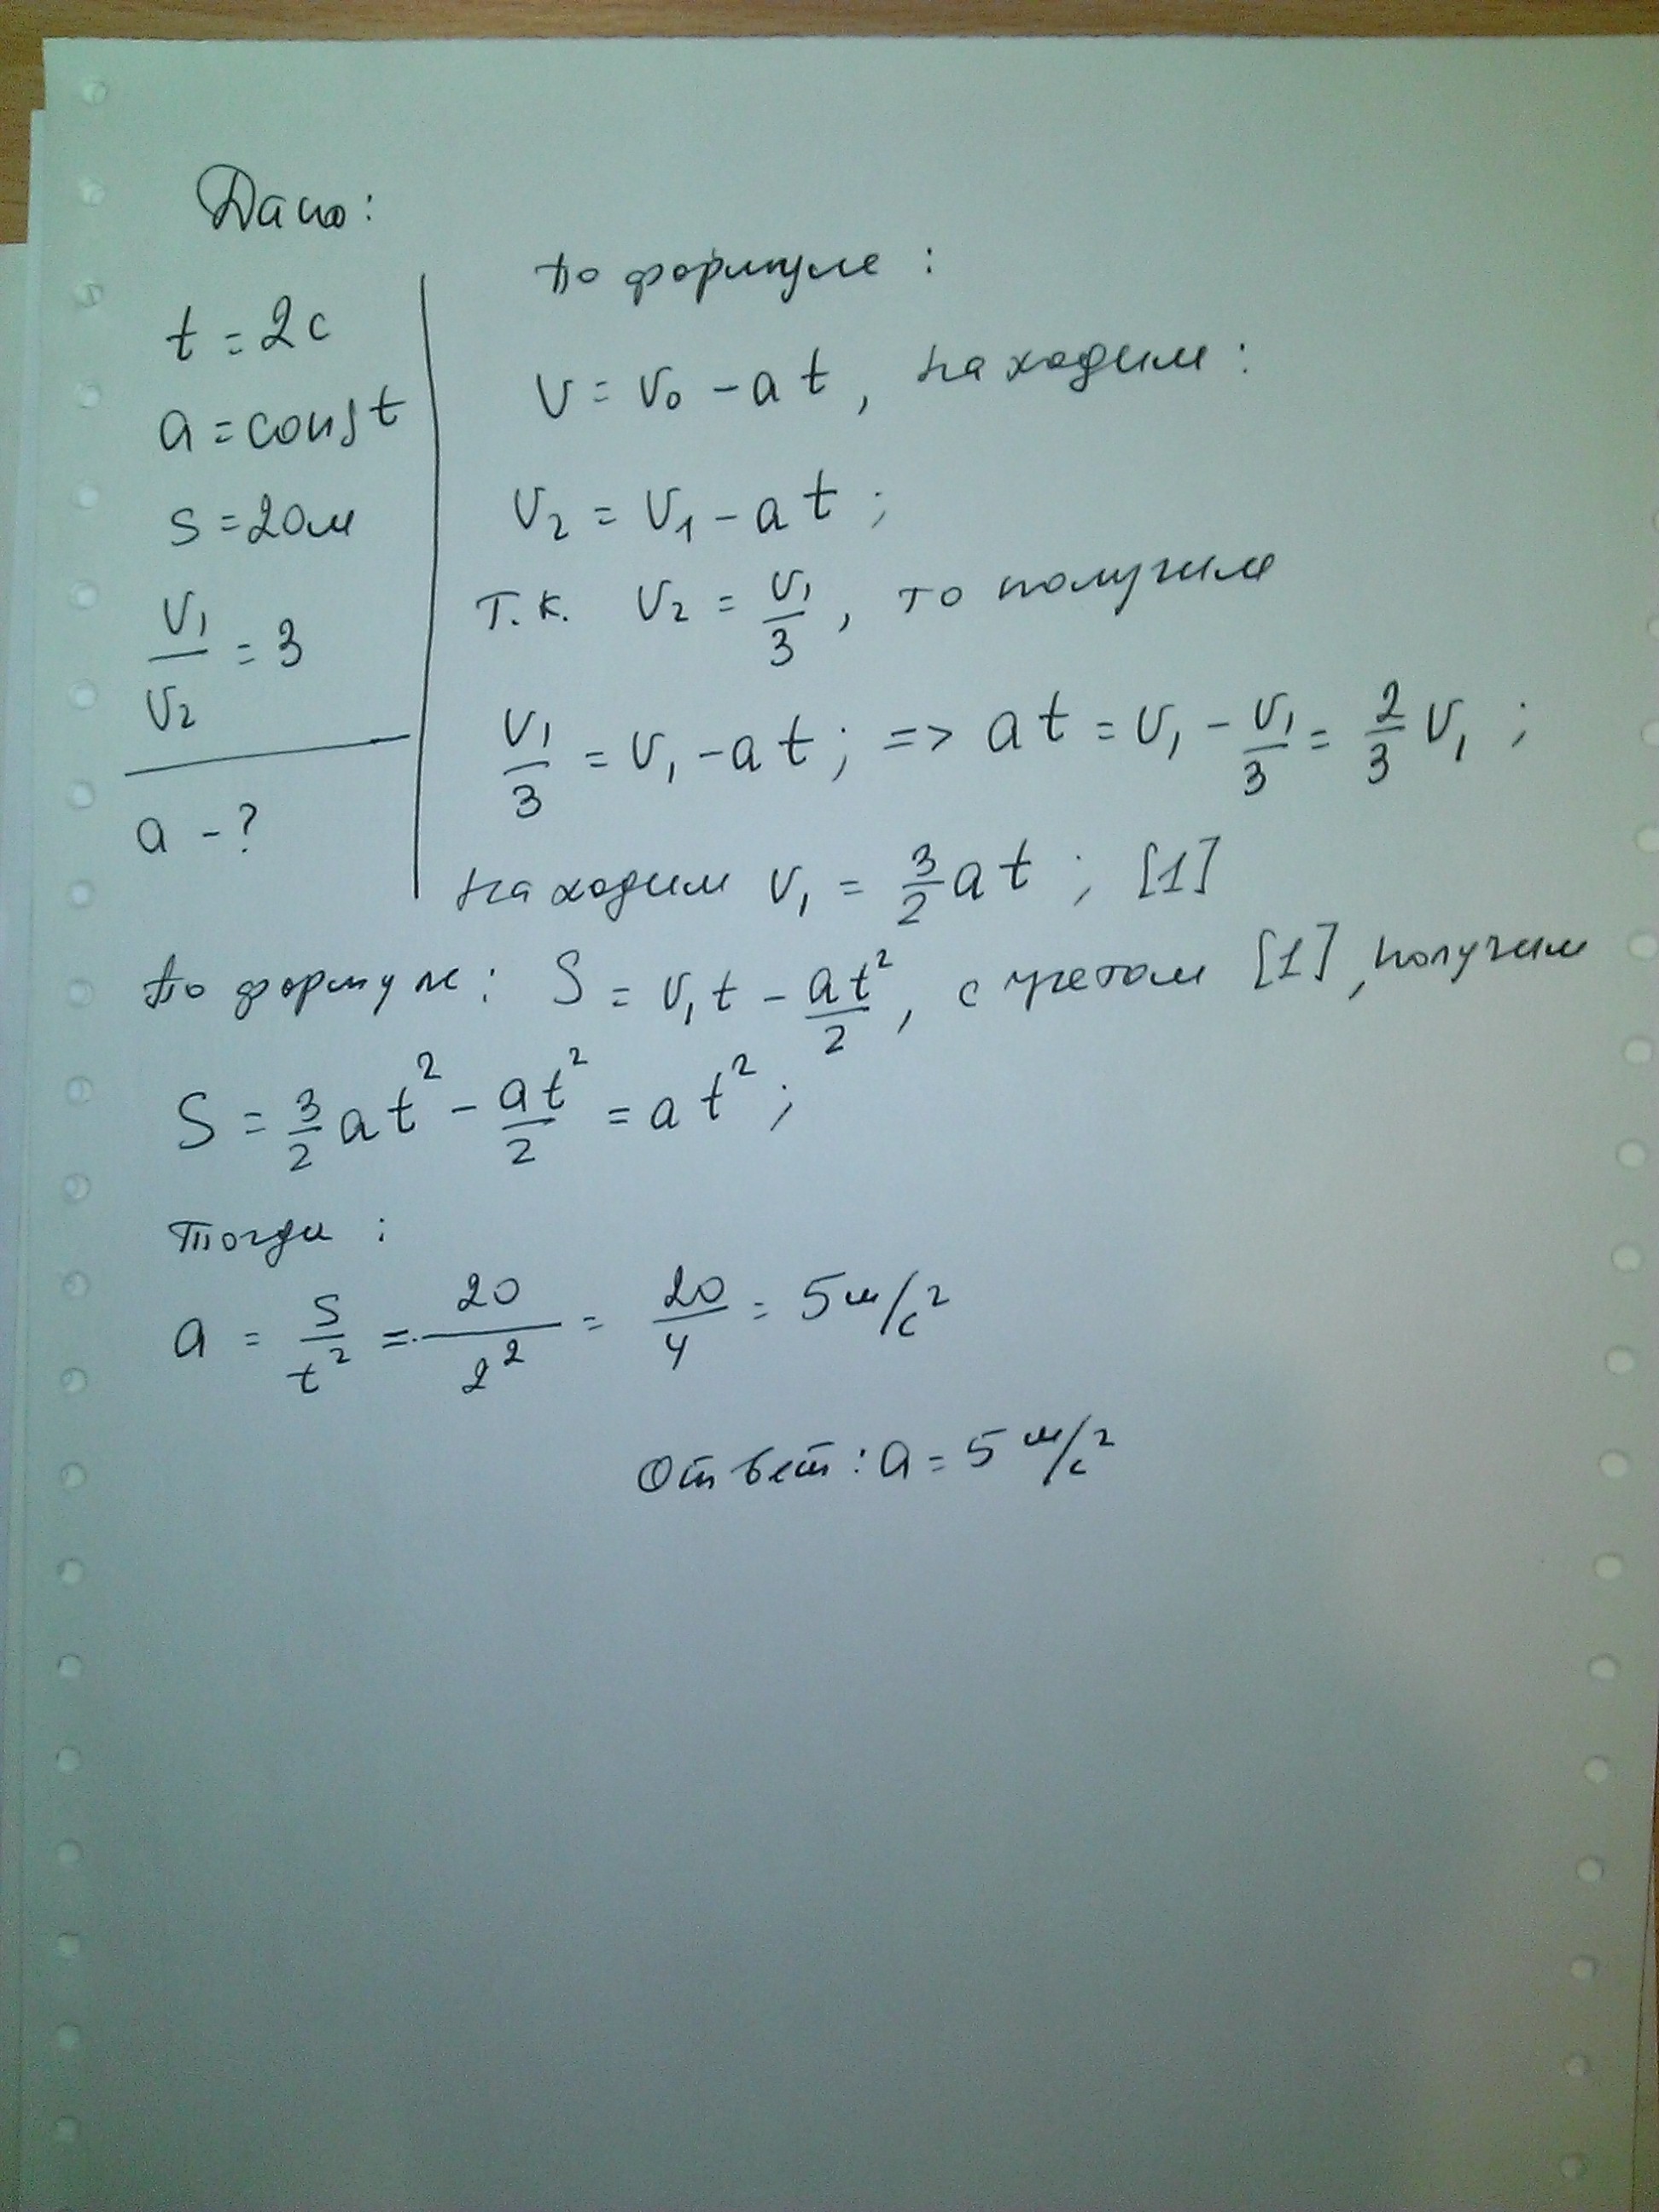 Дано:
t = 2с
a = const
s = 20м
v₁/v₂ = 3
a - ?
По формуле:
v = v₀ - at, находим:
v₂ = v₁ - at;
т.к. v₂ = v₁/3, то получим
v₁/3 = v₁ - at; => at = v₁ - v₁/3 = 2/3 v₁;
находим v₁ = 3/2 at; [1]
По формуле: S = v₁t - at²/2, с учетом [1], получим
S = 3/2 at² - at²/2 = at²;
Тогда:
a = s/t² = 20/2² = 20/4 = 5 м/с²
Ответ: a = 5 м/с²